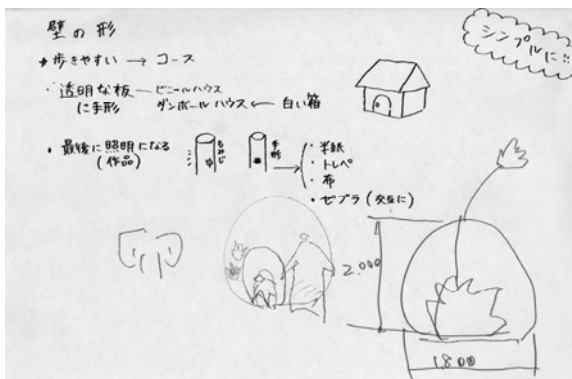 壁の形
シンプルに!!
* 歩きやすい → コース
・透明な板 ─ ビニールハウス
に手形 ダンボールハウス ← 白い箱
・最後に照明になる
(作品)
もみじ
手形
・半紙
・トレペ
・布
・ゼブラ(交互に)
2.000
1800